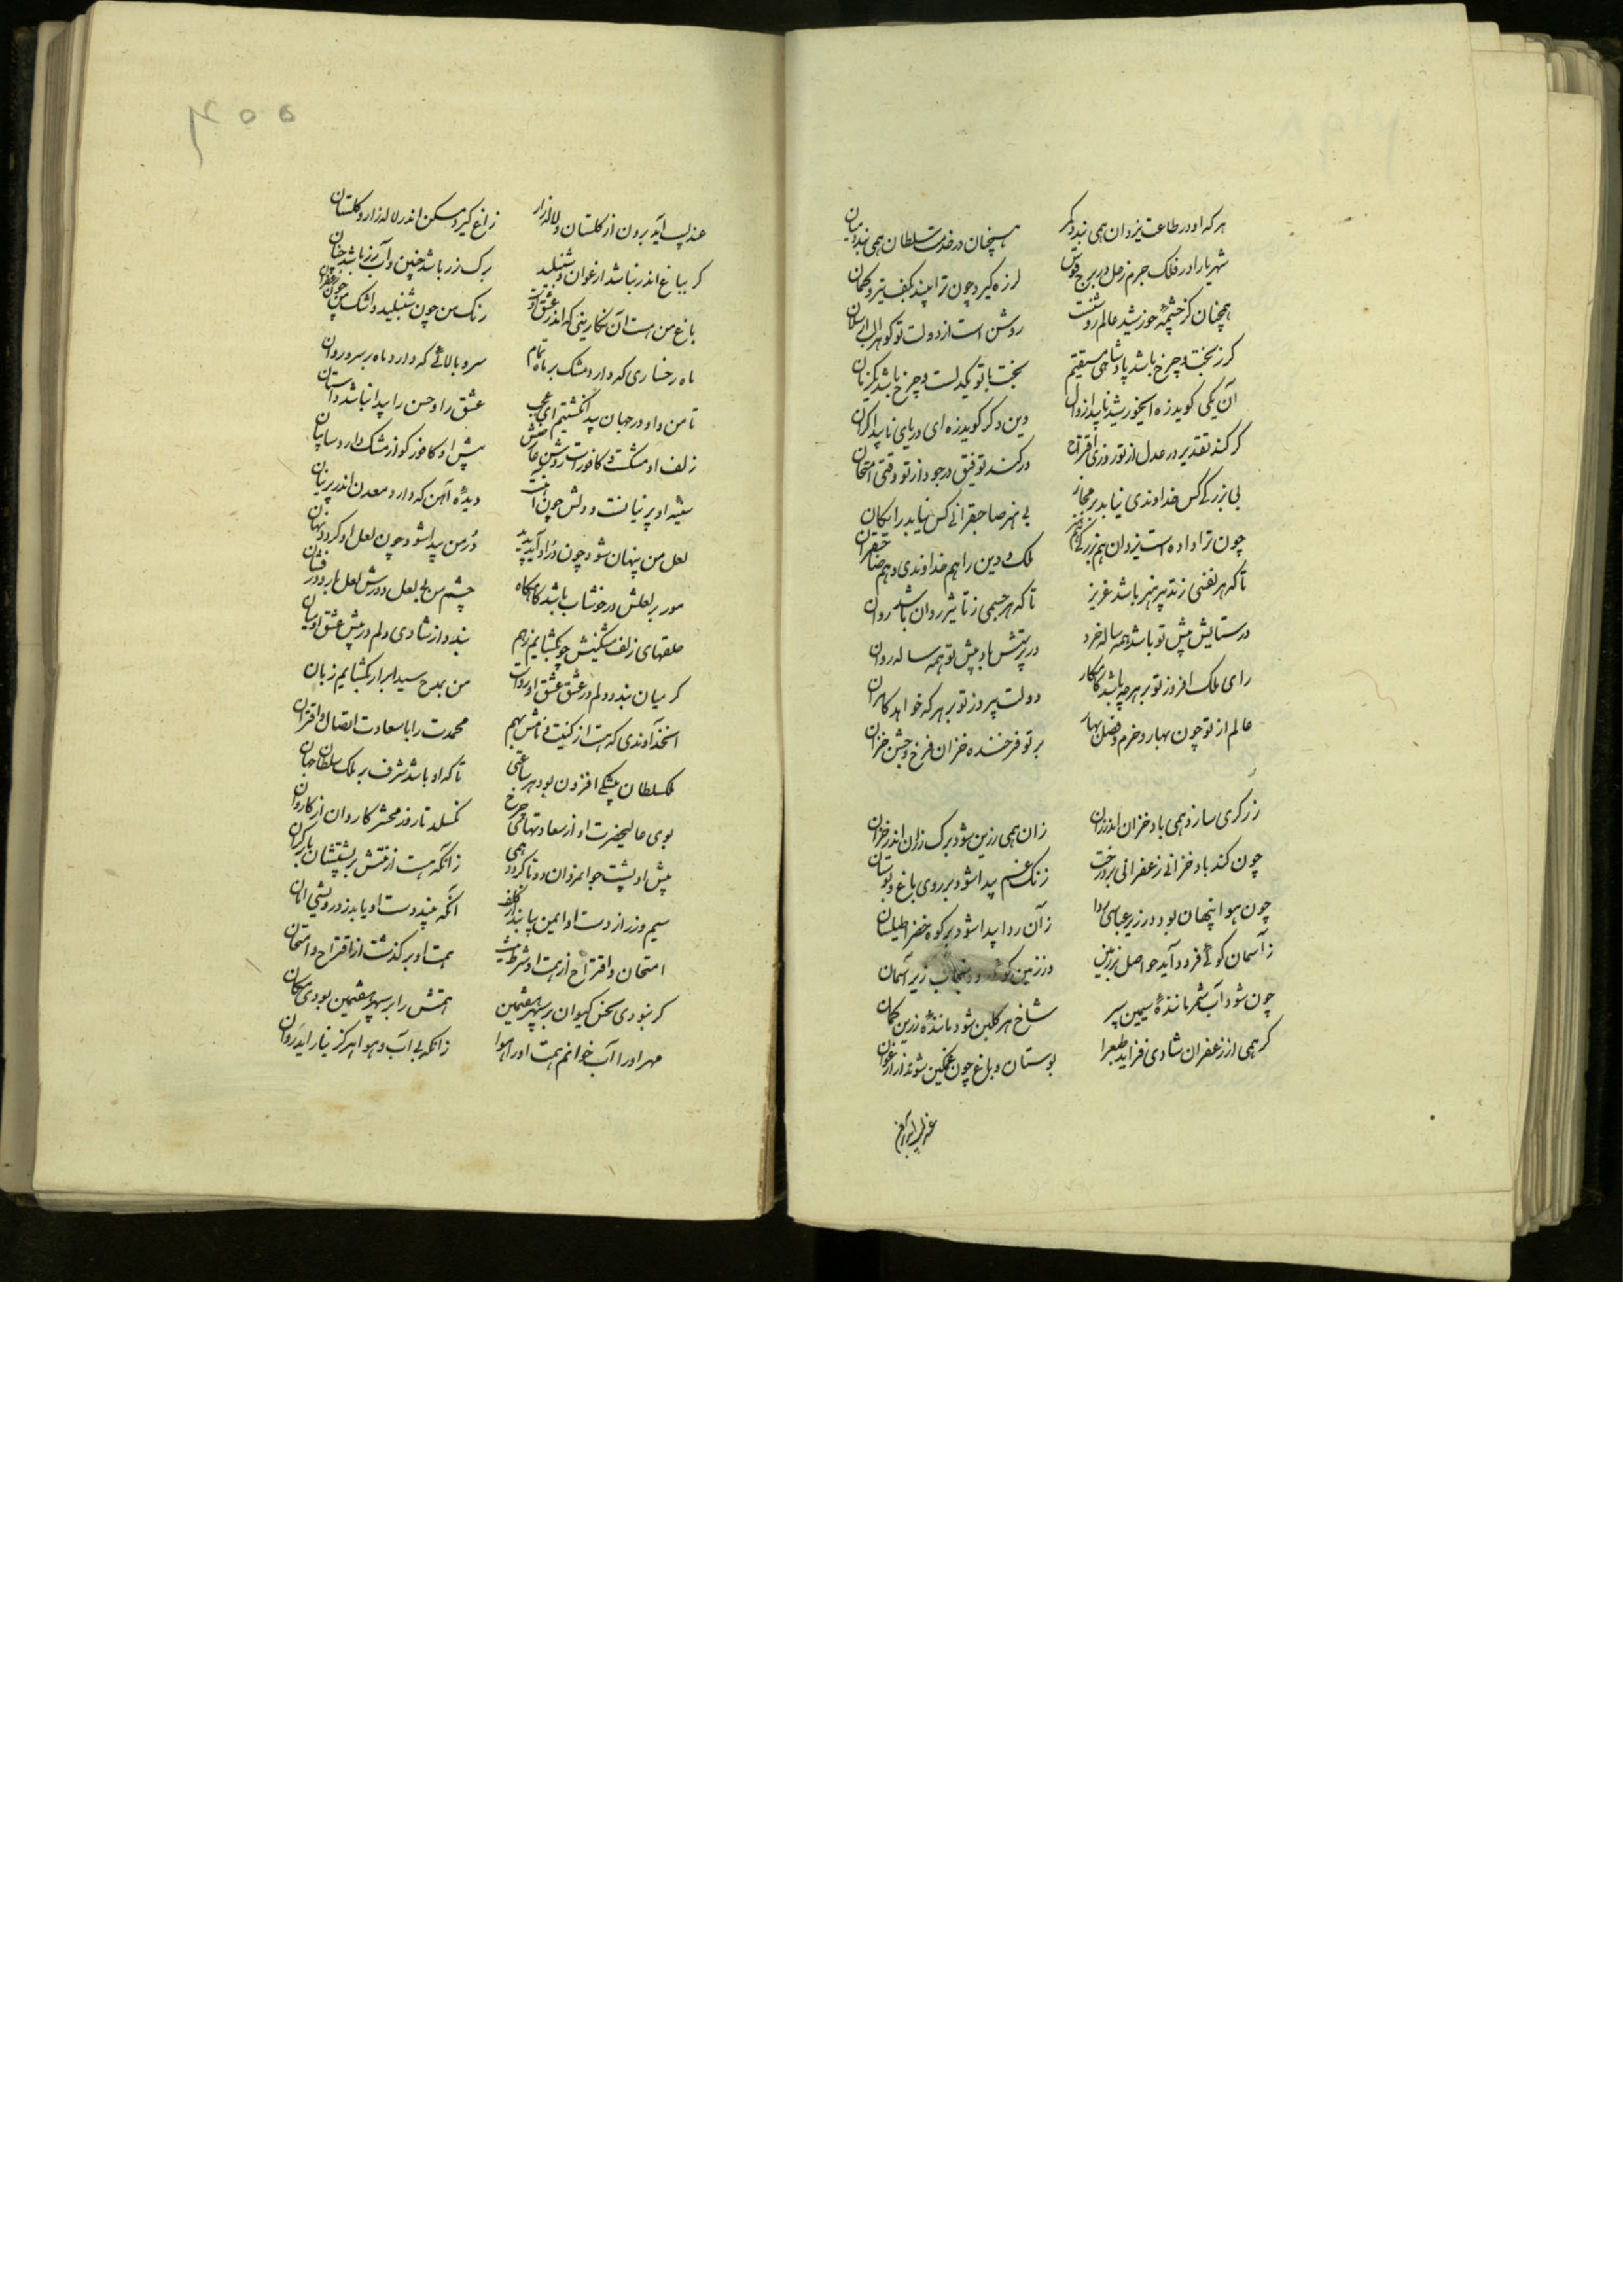 هرکه او در طاعت یزدان همی بندد کمر
همچنان در خدمت سلطان همی بندد میان
شهریارا در فلک جرم زحل در برج قوس
لرزه گیرد چون ترا بیند بکف تیر و کمان
همچنان کز چشمهٔ خورشید عالم روشنست
روشن است از دولت تو گوهر الب ارسلان
گر ز بخت و چرخ باشد پادشاهی مستقیم
بخت با تو یکدلست و چرخ باشد یکزبان
آن یکی گوید زه ای خورشید ناپیدا زوال
وین دگر گوید زه ای دریای ناپیدا کران
گر کند تقدیر در عدل از تو روزی اقتراح
ور کند توفیق در جود از تو وقتی امتحان
بی بزرگی کس خداوندی نیابد بر مجاز
بی هنر صاحبقرانی کس نیابد رایکان
چون ترا داده است یزدان هم بزرگی هم هنر
ملک و دین را هم خداوندی و هم صاحبقران
تا که هر نفسی ز تدبیر هنر باشد عزیز
تا که هر جسمی ز تاثیر روان باشد روان
در ستایش پیش تو باشد همه ساله خرد
در پرستش باد پیش تو همه ساله روان
رای ملک افروز تو بر هرچه باشد کامکار
دولت پیروز تو بر هرکه خواهد کامران
عالم از تو چون بهار و خرم و فصل بهار
بر تو فرخنده خزان فرخ و جشن خزان
زرگری سازد همی باد خزان اندر رزان
زان همی زرین شود برگ رزان اندر خزان
چون کند باد خزانی زعفرانی بر درخت
زنگ غم پیدا شود بر روی باغ و بوستان
چون هوا پنهان بود در زیر عباسی ردا
زان ردا پیدا شود بر کوه خضرا طیلسان
ز آسمان گوئی فرود آید حواصل بر زمین
در زمین گوئی رود سنجاب زیر آسمان
چون شود آب شمر مانندهٔ سیمین سپر
شاخ هر گلبن شود مانندهٔ زرین کمان
گر همی از زعفران شادی فزاید طبع را
بوستان و باغ چون غمگین شوند از زعفران
عندلیب آید برون
۴۰۰
عندلیب آید برون از گلستان و لاله زار
زاغ گیرد مسکن اندر لاله زار و گلستان
گر بباغ اندر نباشد ارغوان و شنبلید
برگ زر باشد چنین و آب رز باشد چنان
باغ من هست آن نگارینی که اندر عشق او
رنگ من چون شنبلید و اشک من چون ارغوان
ماه رخساری که دارد مشک بر ماه تمام
سرو بالائی که دارد ماه بر سرو روان
تا من و او در جهان پیدا نگشتیم ای عجب
عشق را و حسن را پیدا نباشد داستان
زلف او مشکست و کافورست روشن عارضش
پیش او کافور کو از مشک دارد سایبان
سینه او پرنیانست و دلش چون آهنست
دیدهٔ آهن که دارد معدن اندر پرنیان
لعل من پنهان شود چون در او آید پدید
در من پیدا شود چون لعل او گردد نهان
مور بر لعلش در خوشاب باشد گاه گاه
چشم من بر لعل و درش لعل بارد در فشان
حلقهای زلف مشکینش چو بگشایم ز هم
بندد از شادی دلم در پیش عشق او میان
گر میان بندد دلم در عشق عشق او رواست
من بمدح سید ابرار بگشایم زبان
آنخداوندی که هست از کنیت و نامش بهم
محمدت را با سعادت اتصال و اقتران
ملک سلطان بیشکی افزون بود هر ساعتی
تا که او باشد مشرف بر ملک سلطان جهان
سوی عالیحضرت او از سعادتهای چرخ
نگسلد تا روز محشر کاروان از کاروان
پیش او پشت جوانمردان دوتا گردد همی
زانکه هست از منتش بر پشتشان بار گران
سیم و زر از دست او ایمن نباشد از تلف
آنکه بیند دست او یابد ز درویشی امان
امتحان و اقتراح از همت او شرط نیست
همت او برگذشت از اقتراح و امتحان
گر نبودی نحس کیوان بر سپهر هفتمین
همتش را بر سپهر هفتمین بودی مکان
مهر او را آب خوانم همت او را هوا
زانکه بی آب و هوا هرگز نیارامد روان